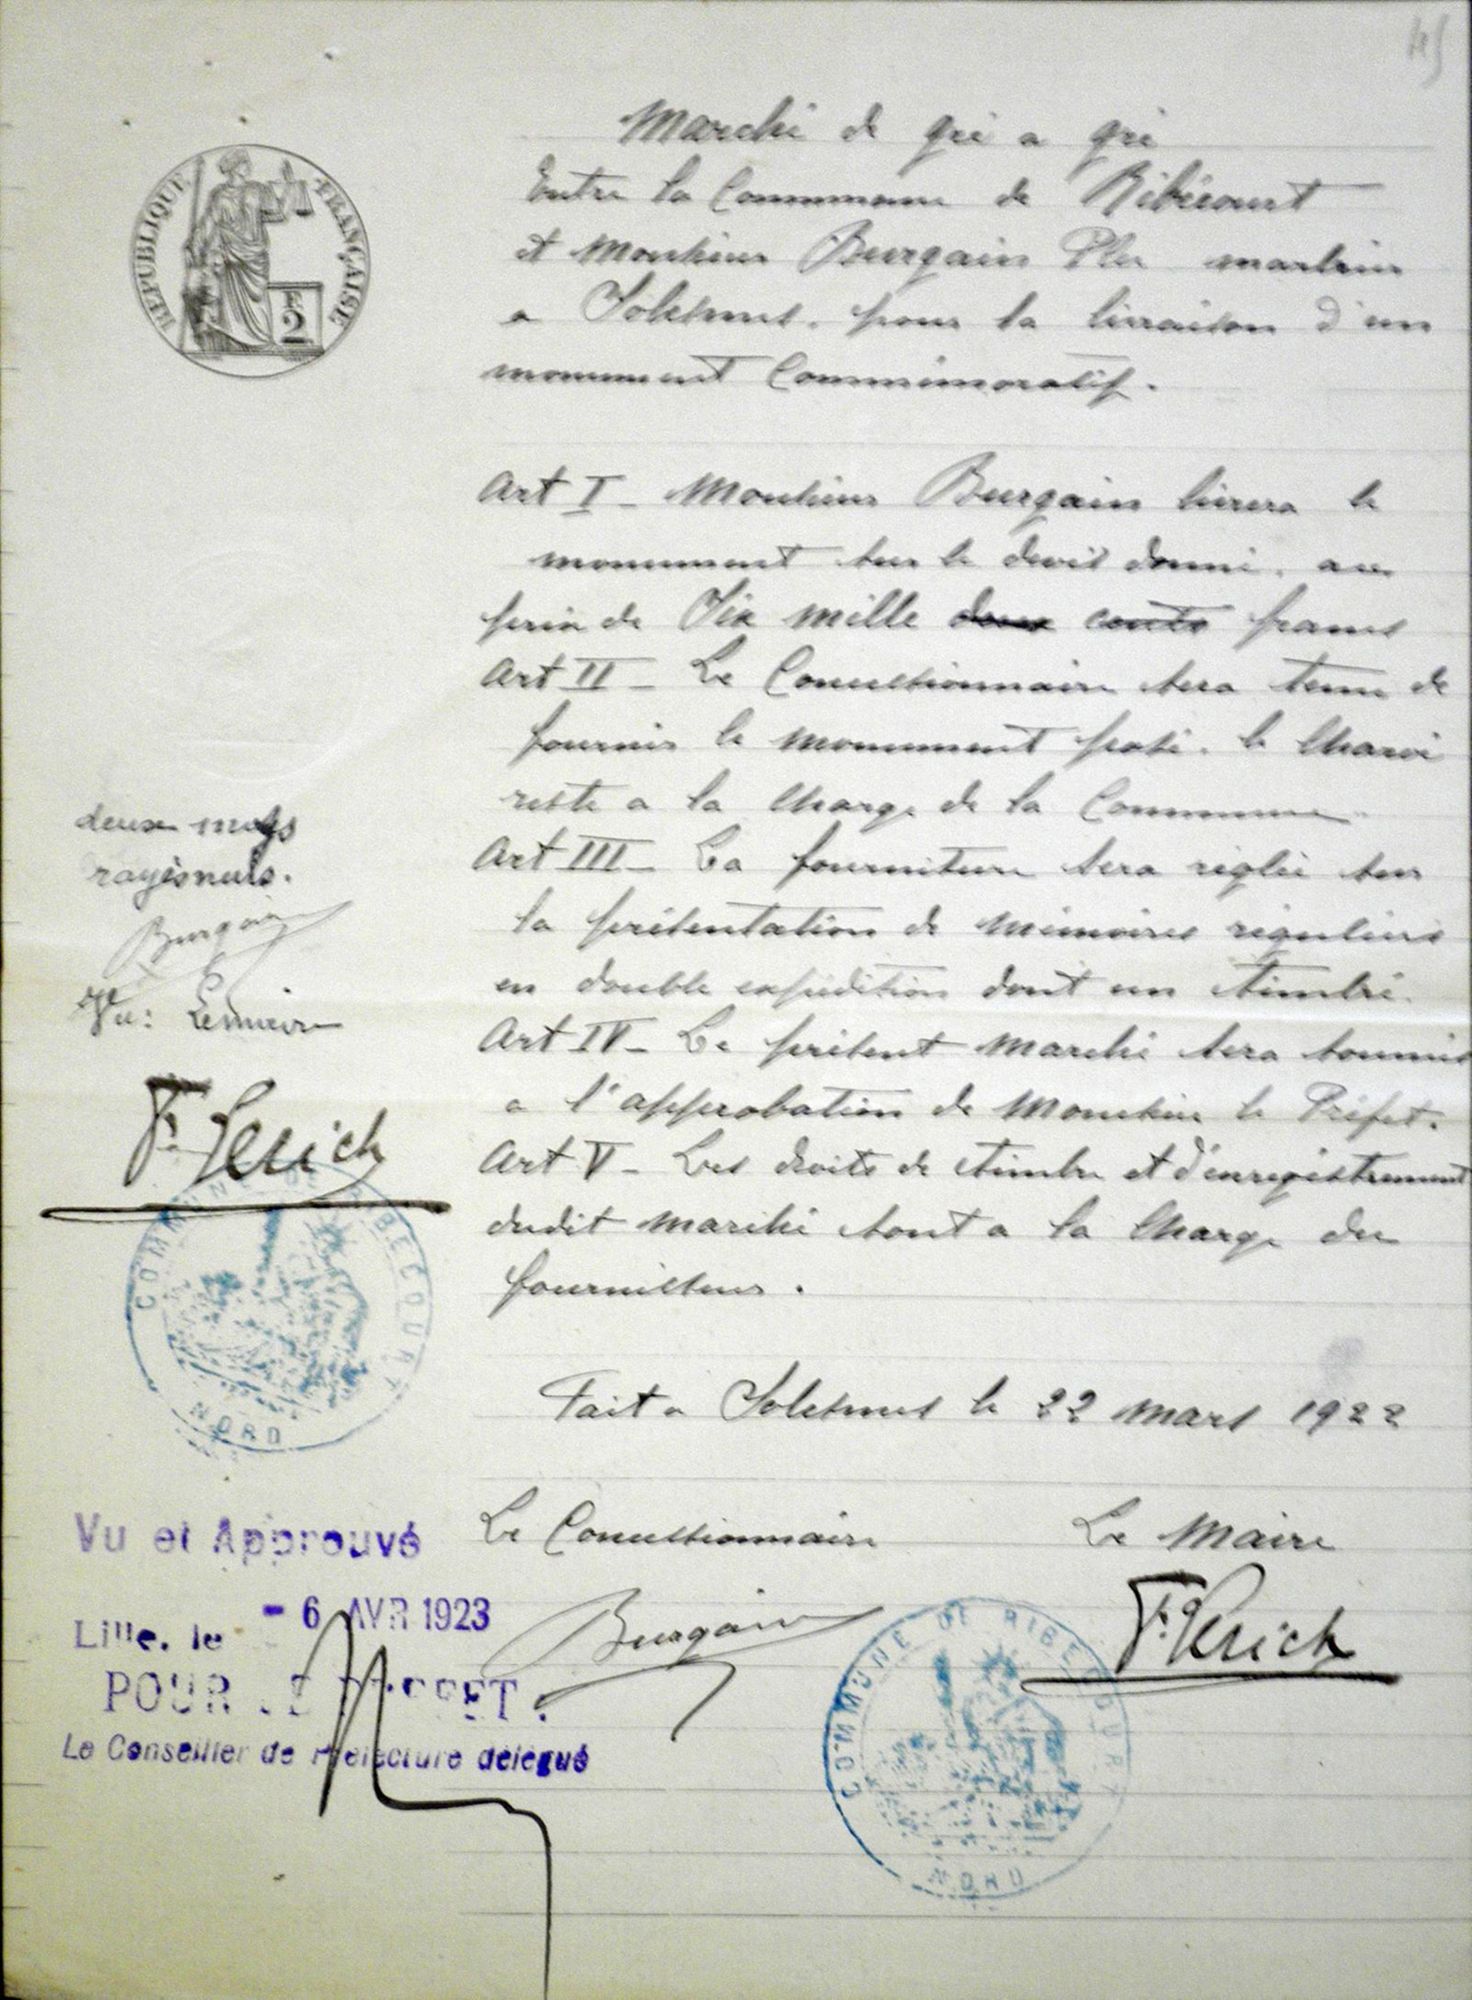 45
REPUBLIQUE FRANÇAISE
F
2
Marché de gré a gré
Entre la Commune de Ribécourt
et Monsieur Burgain marbrier
a Solesmes. pour la livraison d'un
monument Commémoratif.
Art I - Monsieur Burgain livrera le
monument sur le devis donné. au
prix de Six mille deux cents francs
Art II - Le Concessionnaire sera tenu de
fournir le monument posé. le Charoi
reste a la Charge de la Commune
Art III - La fourniture sera réglée sur
la présentation de mémoires réguliers
en double expédition dont un timbré.
Art IV - Le présent marché sera soumis
a l'approbation de Monsieur le Préfet.
Art V - Les droits de timbre et d'enregistrement
dudit marché sont a la Charge du
fournisseur.
Fait a Solesmes le 22 Mars 1922
Le Concessionnaire Le Maire
Burgain
deux mots
rayés nuls.
Burgain
Vu:
COMMUNE DE RIBECOURT
NORD
Vu et Approuvé
Lille, le - 6 AVR 1923
POUR LE PREFET.
Le Conseiller de Préfecture délégué
COMMUNE DE RIBECOURT
NORD